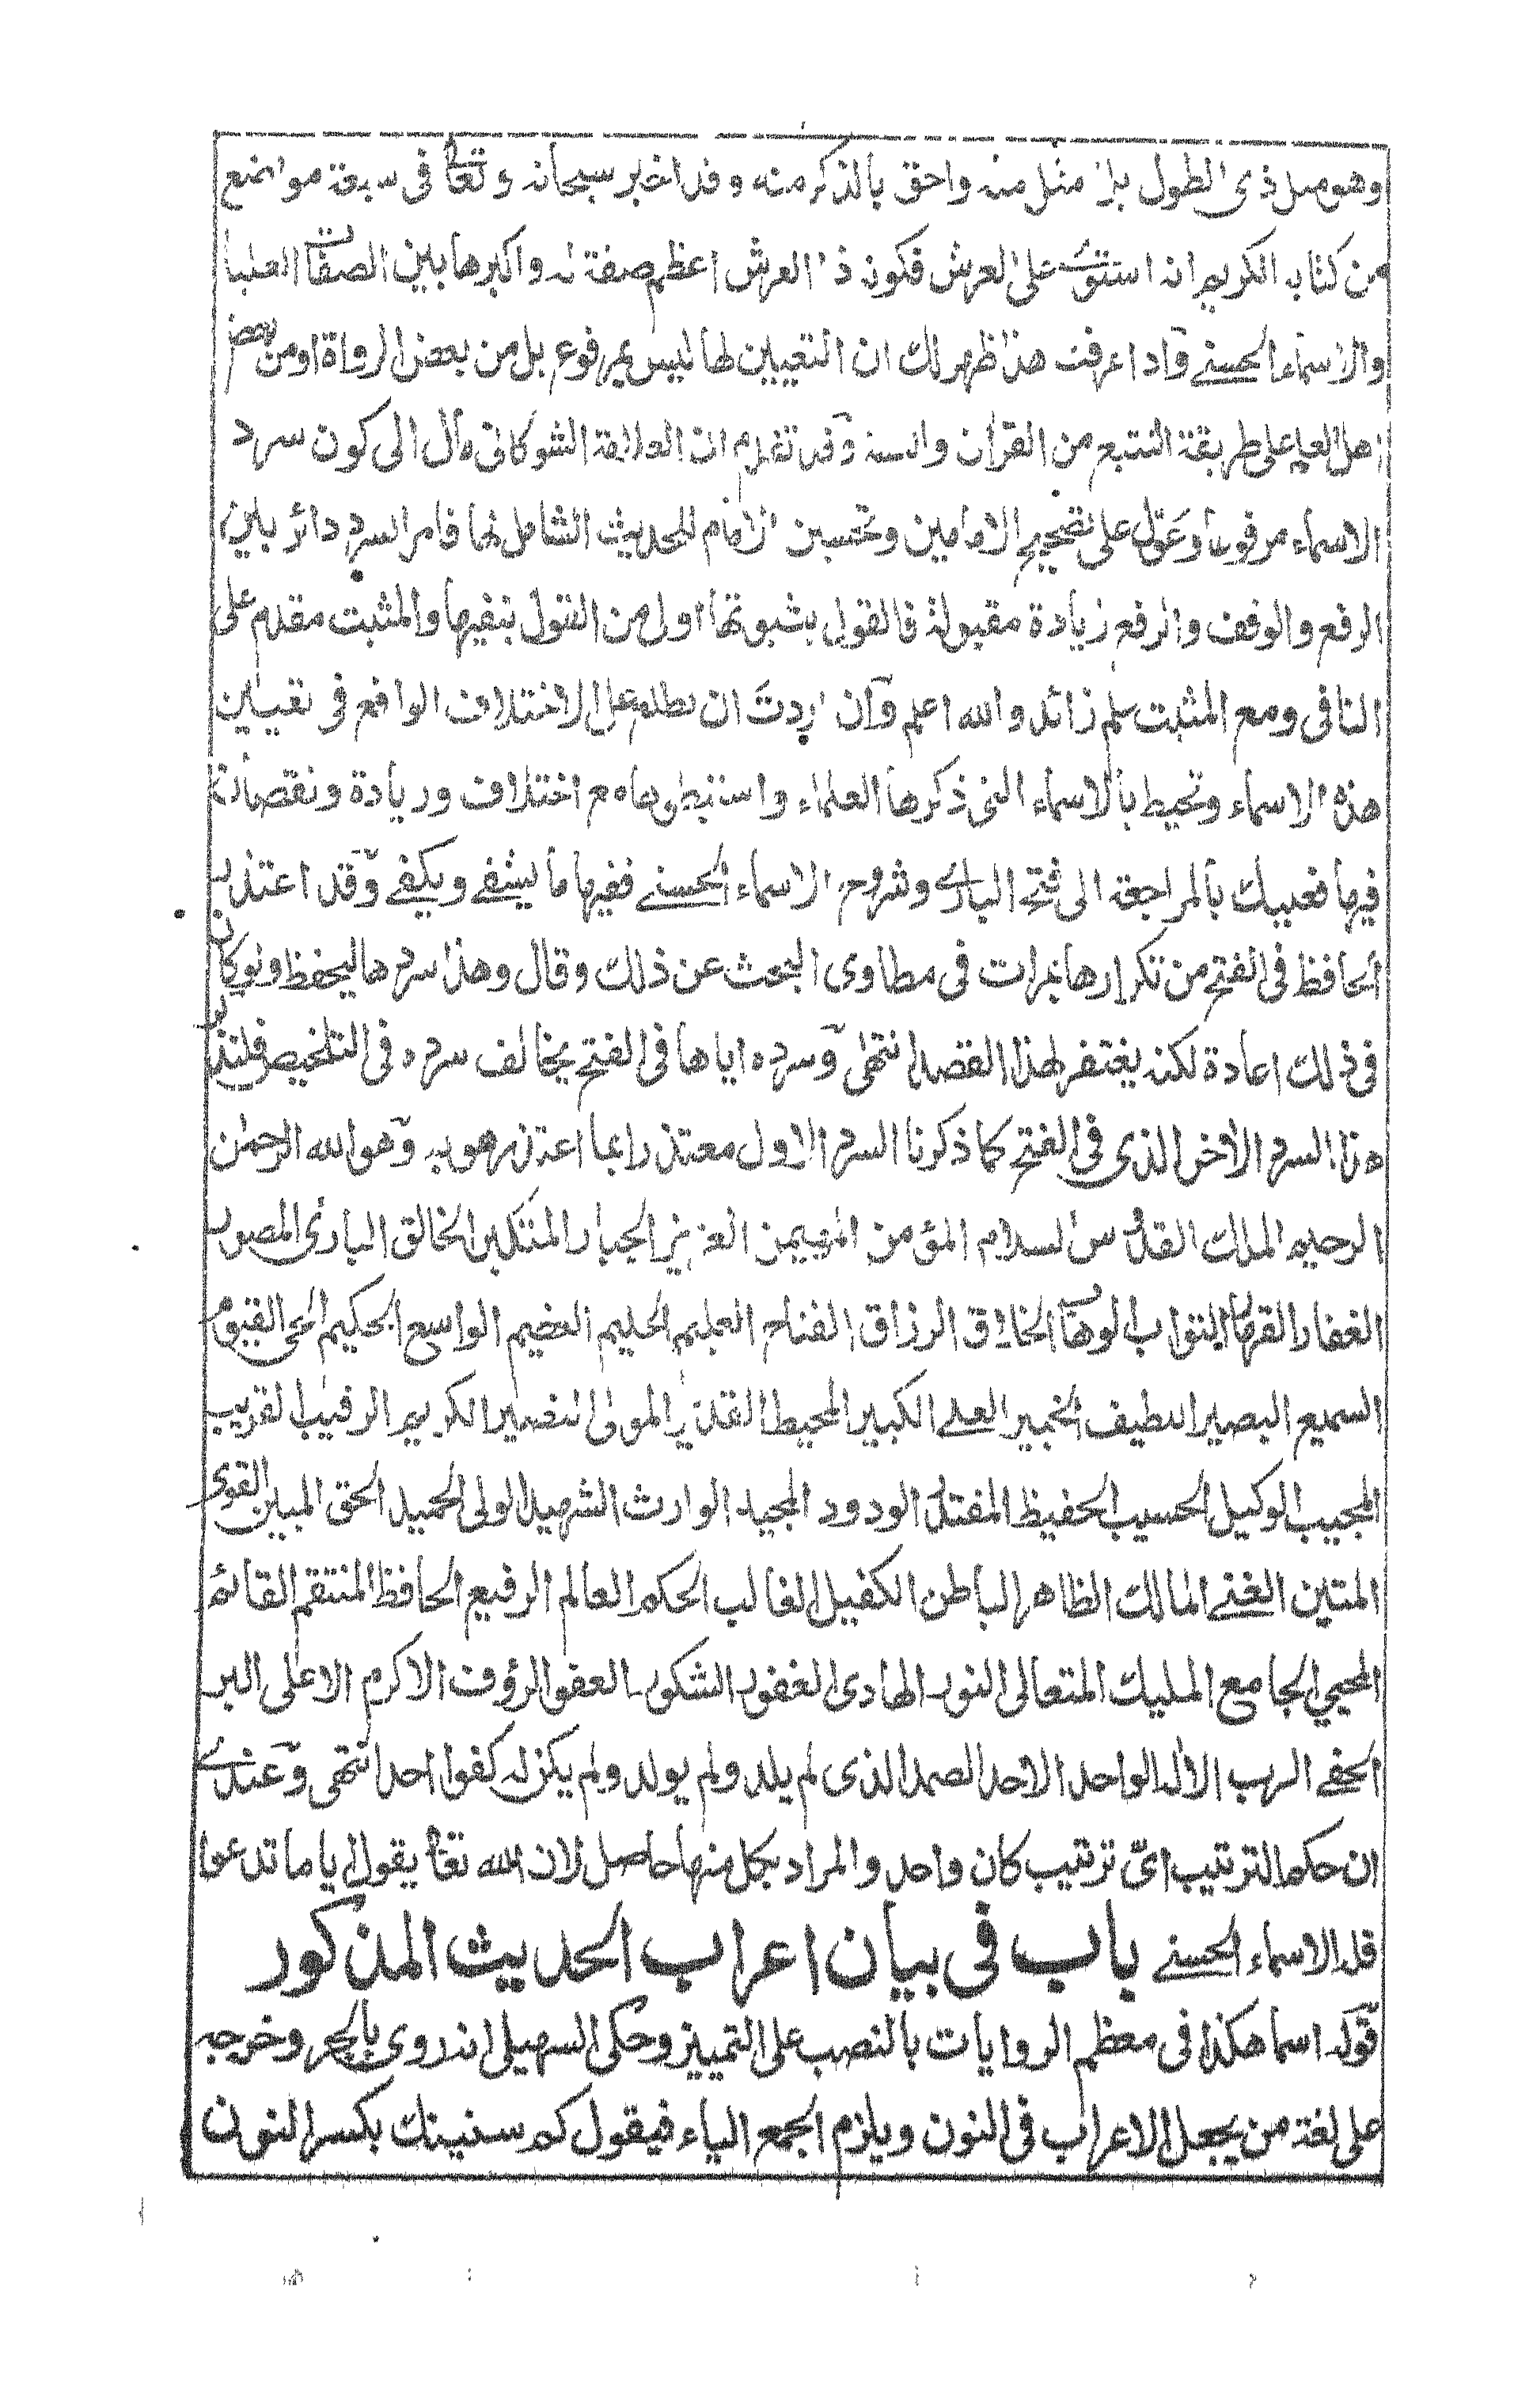 وهو مثل ذى الطول بل امثل منه واحق بالذكر منه وقد اخبر سبحانه وتعالى فى سبعة مواضع
من كتابه الكريم انه استوى على العرش فكونه ذا العرش اعظم صفة له واكبرها بين الصفات العليا
والاسماء الحسنى واذا عرفت هذا ظهر لك ان التعيين لها ليس بمرفوع بل من بعض الرواة او من بعض
اهل العلم على طريقة التتبع من القرآن والسنة وقد تقدم ان العلامة الشوكانى مال الى كون سرد
الاسماء مرفوعا وعول على تصحيح الامامين وتحسين الامام للحديث الشامل لها فامر السرد دائر بين
الرفع والوقف والرفع زيادة مقبولة فالقول بثبوتها اولى من القول بنفيها والمثبت مقدم على
النافى ومع المثبت علم زائد والله اعلم وان اردت ان تطلع على الاختلاف الواقع فى تعيين
هذه الاسماء وتحيط بالاسماء التى ذكرها العلماء واستنبطوها مع اختلاف وزيادة ونقصان
فيها فعليك بالمراجعة الى فتح البارى وشروح الاسماء الحسنى ففيها ما يشفى ويكفى وقد اعتذر
الحافظ فى الفتح من تكرارها بمرات فى مطاوى البحث عن ذلك وقال وهذا سردها ليحفظ ولو كان
فى ذلك اعادة لكنه يغتفر لهذا القصد انتهى وسرده اياها فى الفتح يخالف سرده فى التلخيص فلنذكر
هذا السرد الاخر الذى فى الفتح كما ذكرنا السرد الاول معتذرا بما اعتذر هو به وهو الله الرحمن
الرحيم الملك القدوس السلام المؤمن المهيمن العزيز الجبار المتكبر الخالق البارئ المصور
الغفار القهار التواب الوهاب الخلاق الرزاق الفتاح العليم الحليم العظيم الواسع الحكيم الحى القيوم
السميع البصير اللطيف الخبير العلى الكبير المحيط القدير المولى النصير الكريم الرقيب القريب
المجيب الوكيل الحسيب الحفيظ المقتدر الودود المجيد الوارث الشهيد الولى الحميد الحق المبين القوى
المتين الغنى المالك الظاهر الباطن الكفيل الغالب الحكم العالم الرفيع الحافظ المنتقم القائم
المحيى الجامع المليك المتعالى النور الهادى الغفور الشكور العفو الرؤف الاكرم الاعلى البر
الحفى الرب الاله الواحد الاحد الصمد الذى لم يلد ولم يولد ولم يكن له كفوا احد انتهى وعندى
ان حكم الترتيب اىّ ترتيب كان واحد والمراد بكل منها حاصل لان الله تعالى يقول ايا ما تدعوا
فله الاسماء الحسنى باب فى بيان اعراب الحديث المذكور
قوله اسما هكذا فى معظم الروايات بالنصب على التمييز وحكى السهيلى انه روى بالجر وخرجه
على لغة من يجعل الاعراب فى النون ويلزم الجمع الياء فيقول كم سنينك بكسر النون